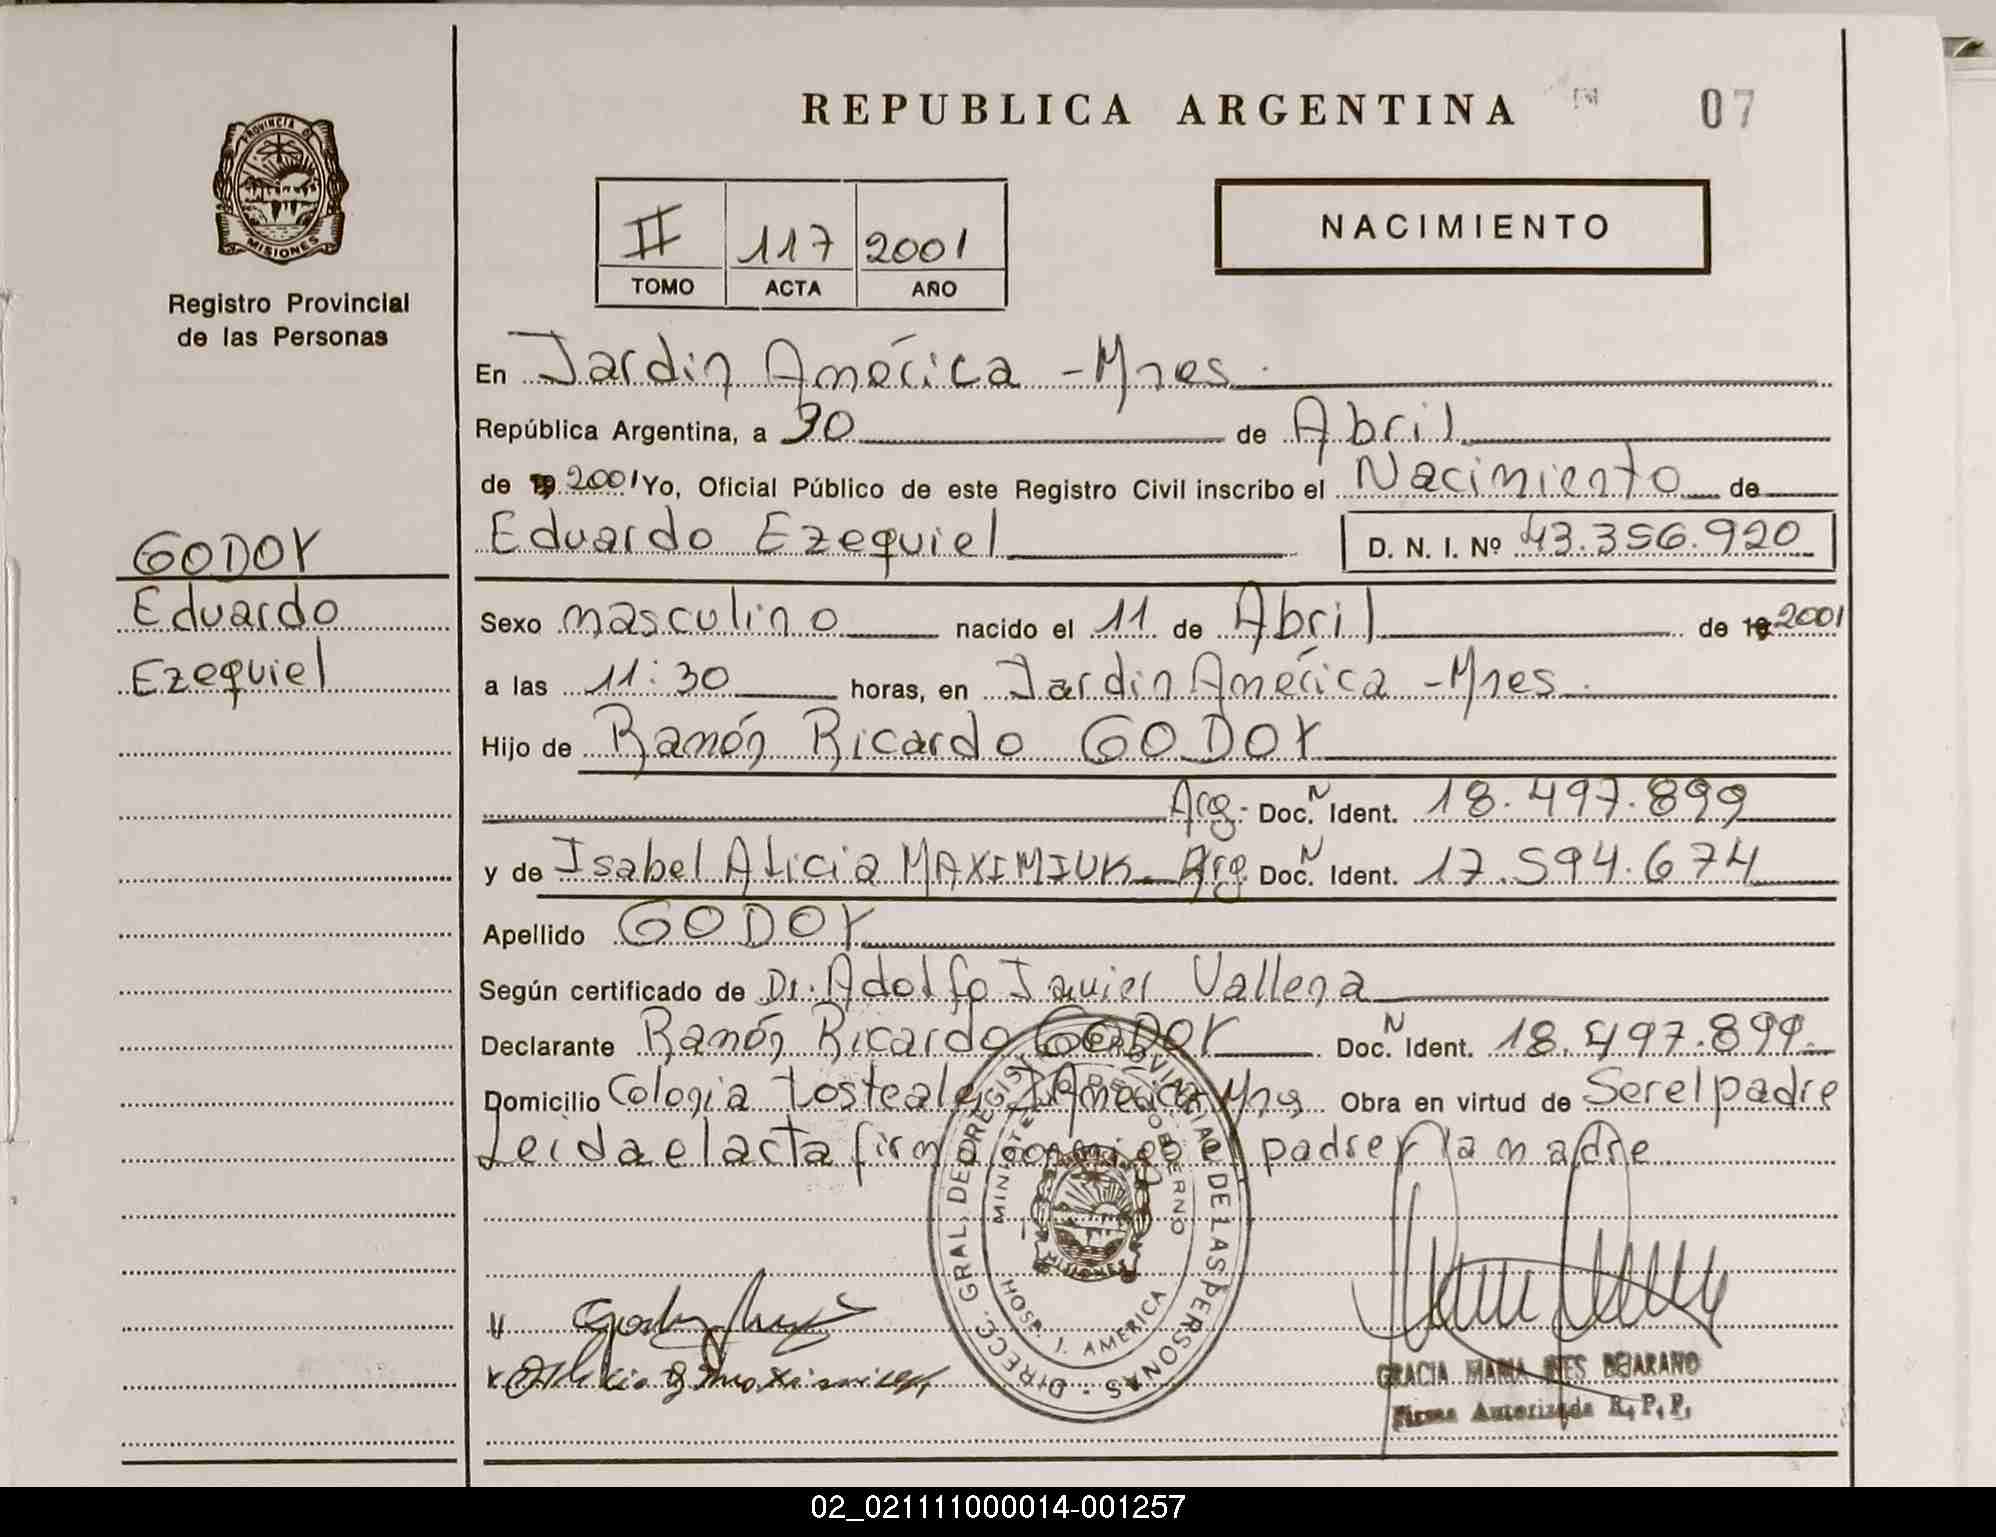 REPUBLICA ARGENTINA
07
PROVINCIA D
MISIONES
Registro Provincial
de las Personas
II 117 2001
TOMO ACTA AÑO
NACIMIENTO
En Jardin América - Mnes.
República Argentina, a 30 de Abril
de 19 2001 Yo, Oficial Público de este Registro Civil inscribo el Nacimiento de
Eduardo Ezequiel D. N. I. Nº 43.356.920
GODOY
Eduardo
Ezequiel
Sexo masculino nacido el 11 de Abril de 19 2001
a las 11:30 horas, en Jardin América - Mnes.
Hijo de Ramón Ricardo GODOY
Arg. Doc. N Ident. 18.497.899
y de Isabel Alicia MAXIMIUK Arg. Doc. N Ident. 17.594.674
Apellido GODOY
Según certificado de Dr. Adolfo Javier Vallena
Declarante Ramón Ricardo GODOY Doc. N Ident. 18.497.899.
Domicilio Colonia J. América Mnes Obra en virtud de Ser el padre
Leida el acta firma conmigo el padre y la madre
DIRECC. GRAL. DE REGISTRO PROVINCIAL DE LAS PERSONAS
MINISTERIO DE GOBIERNO
MISIONES
HOSP. J. AMERICA
GRACIA MARIA INES BEJARANO
Firma Autorizada R. P. P.
02_021111000014-001257